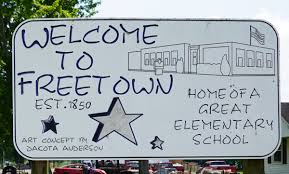 WELCOME
TO
FREETOWN
EST. 1850
ART CONCEPT BY
DAKOTA ANDERSON
HOME OF A
GREAT
ELEMENTARY
SCHOOL